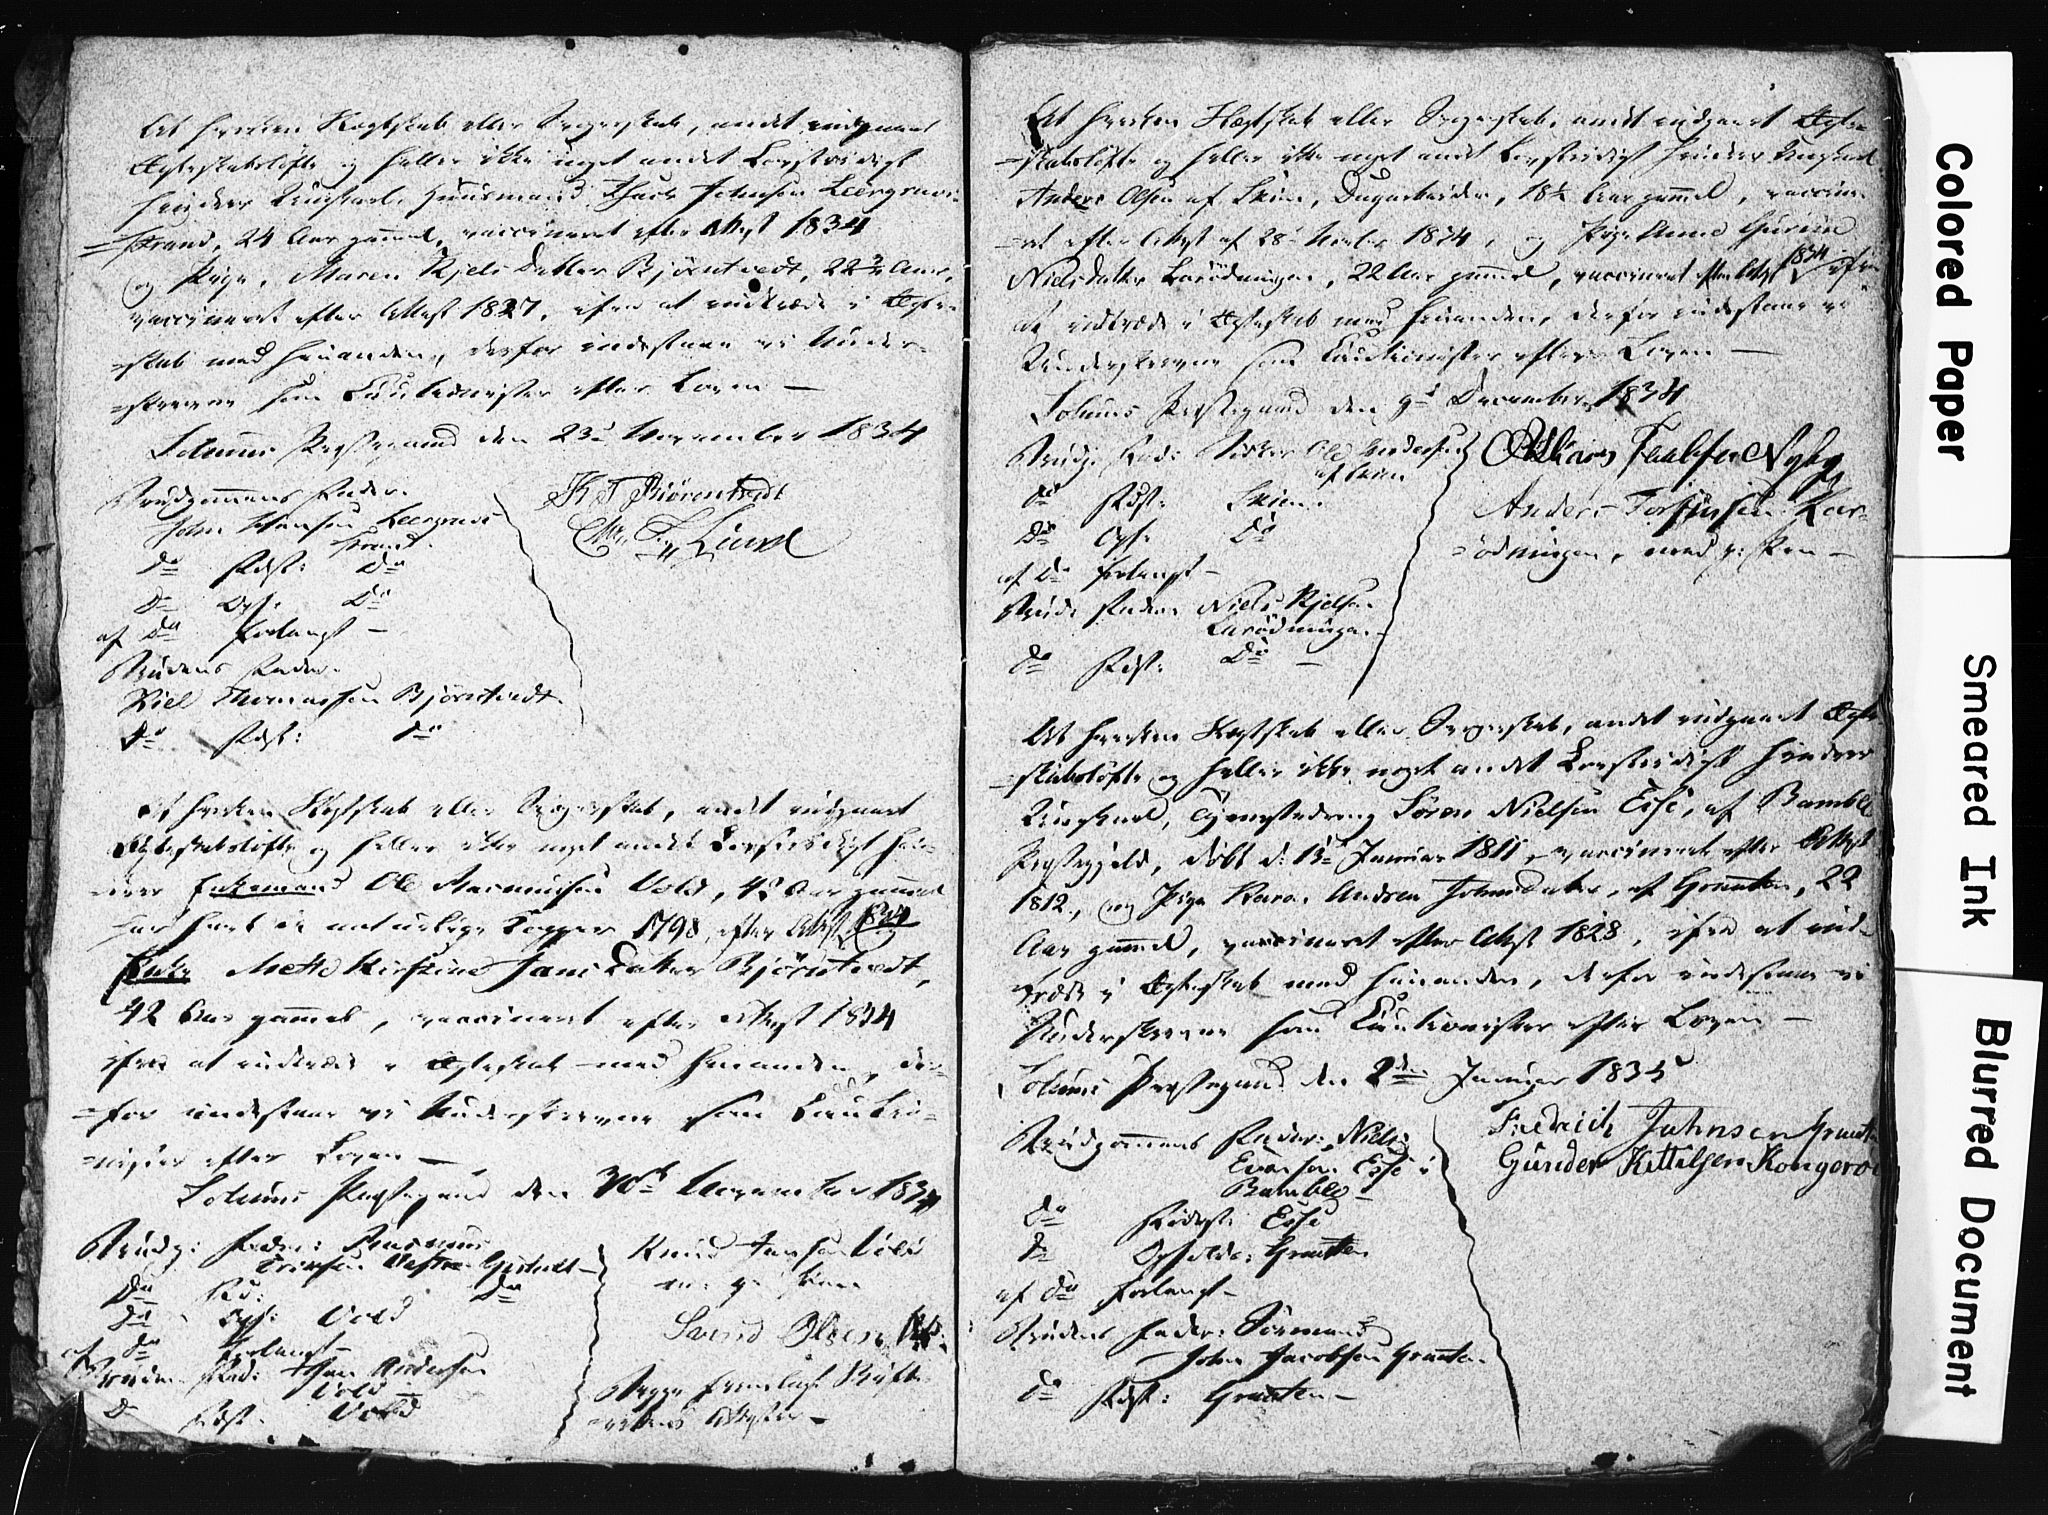 At hverken Slægtskab eller Svogerskab, andet indgaaet
Ægteskabsløfte og heller ikke noget andet Lovstridigt
hindrer Ungkarl, Huusmand Isach Johnsen Leergravs-
=strand, 24 Aar gammel, vaccineret efter Attest 1834
og Pige, Maren Kjels Datter Bjørntvedt, 22 Aar,
vaccineret efter Attest 1827, ifra at indtræde i Ægte-
=skab med hinanden, derfor indestaae vi Under-
=skrevne som Cautionister efter Loven —
Solums Præstegaard den 23de November 1834
Brudgommens Fader.
John Hansen Leergravs
strand.
Do Fødst: Do
Do Opf. Do
af Do forlangt —
Brudens Fader.
Kiel Thomassen Bjørntvedt.
Do Fødst: Do
K T Biørentvedt
Lund
At hverken Slægtskab eller Svogerskab, andet indgaaet
Ægteskabsløfte og heller ikke noget andet Lovstridigt hin-
drer Enkemand Ole Rasmussen Vold, Aar gammel
har havt de naturlige Kopper 1798, efter Attest 1834
Enke Mette Kirstine Jans Datter Bjørntvedt,
42 Aar gammel, vaccineret efter Attest 1834
ifra at indtræde i Ægteskab med hinanden, der-
=for indestaae vi Underskrevne som Cautio-
=nister efter Loven —
Solums Præstegaard den 30te November 1834
Brudg: Fader: Rasmus
Gisholt —
Do Fød: Do
Do Opf: Vold
af Do forlangt —
Bruden Fad: Jan Andersen
Vold
Do Fødst. Vold
Knud Jansen Vold
m. p. Pen
Svend Olsen
Begge fremlagt Skifte-
=rettens Attester —
At hverken Slægtskab eller Svogerskab, andet indgaaet Ægte-
=skabsløfte og heller ikke noget andet Lovstridigt hindrer Ungkarl
Anders Olsen af Skien, Dagarbeider, 18½ Aar gammel, vaccine-
=ret efter Attest af 28 1834, og Pige Anne Gurine
Nielsdatter Larødningen, 22 Aar gammel, vaccineret efter Attest 1834 ifra
at indtræde i Ægteskab med hinanden, derfor indestaae vi
Underskrevne som Cautionister efter Loven —
Solums Præstegaard den 9de December 1834
Brudg. Fad: Ole Andersen
af Skien
Do Fødst: Skien.
Do Opf. Do
af Do forlangt —
Brudens Fader. Niels Kjelsen
Larødningen. —
Do Fødst: Do —
Anders Torstensen Lar-
=ødningen, med p: Pen —
At hverken Slægtskab eller Svogerskab, andet indgaaet Ægte
=skabsløfte og heller ikke noget andet Lovstridigt hindrer
Ungkarl, Tjenestedreng Søren Nielsen Esse, af Bamble
Præstegjeld, døbt d: 13de Januar 1811, vaccineret efter Attest
1812, og Pige Karen Andrea Johnsdatter, af Graaten, 22
Aar gammel, vaccineret efter Attest 1828, ifra at ind-
=træde i Ægteskab med hinanden, derfor indestaae vi
Underskrevne som Cautionister efter Loven —
Solums Præstegaard den 2den Januar 1835
Brudgommens Fader: Niels
Evensen Esse i
Bamble —
Do Fødest: Esse
Do Opholds. Graaten
af Do forlangt —
Brudens Fader: Sømand
John Jacobsen Graaten
Do Fødst: Graaten —
Fredrich Johnsen Graaten
Gunder Kittelsen Kongerød
Colored Paper
Smeared Ink
Blurred Document